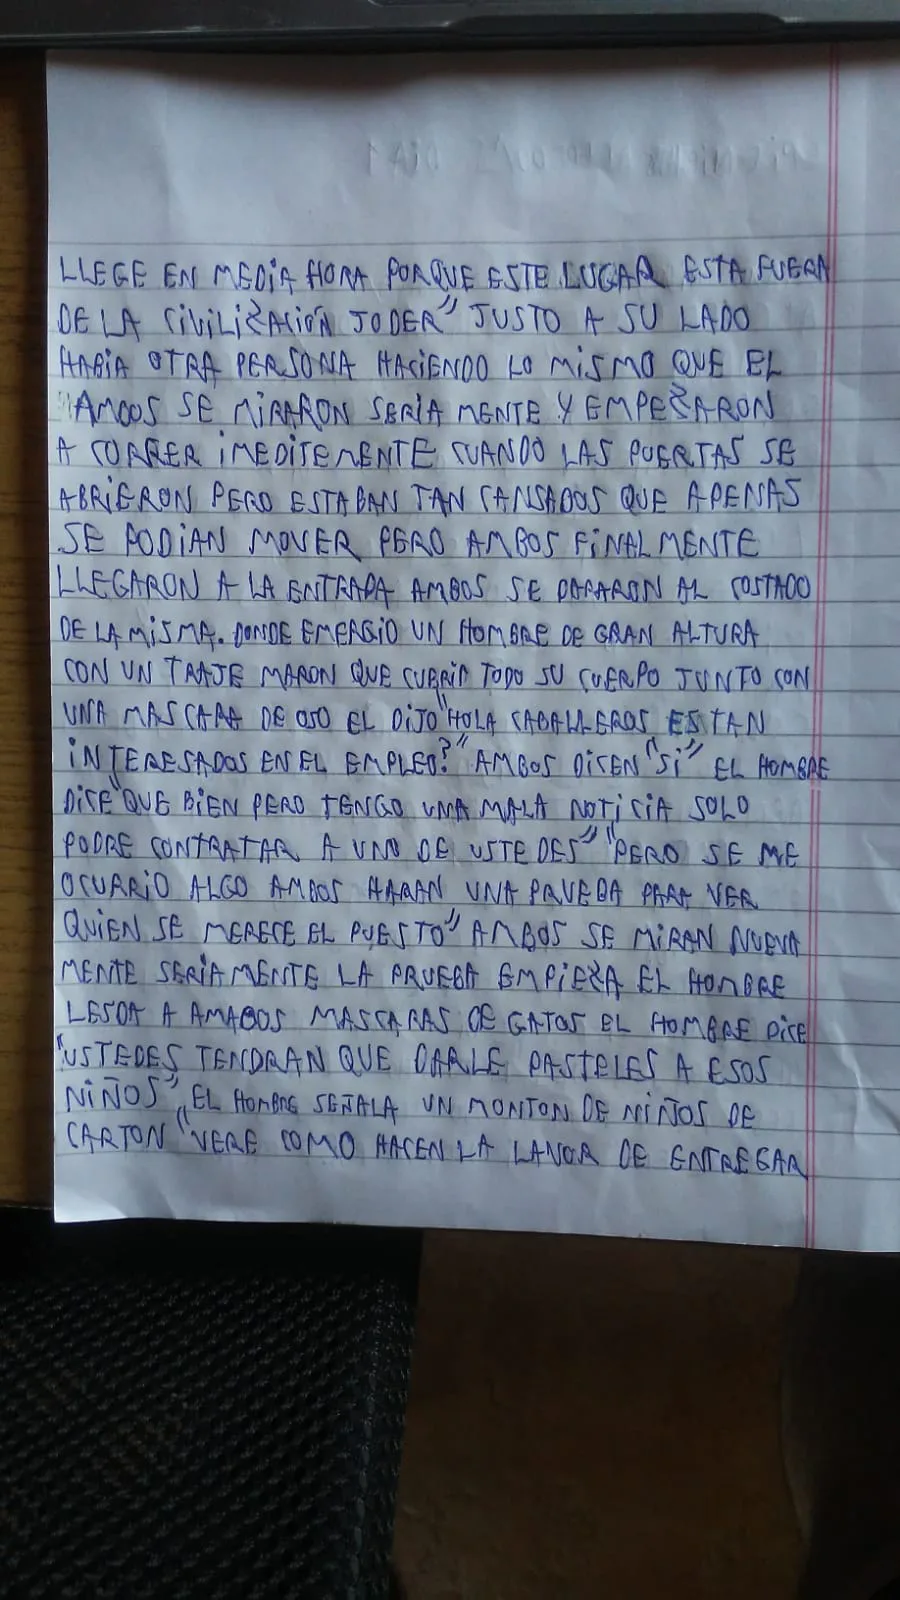 LLEGE EN MEDIA HORA PORQUE ESTE LUGAR ESTA FUERA
DE LA CIVILIZACIÓN JODER" JUSTO A SU LADO
HABIA OTRA PERSONA HACIENDO LO MISMO QUE EL
AMBOS SE MIRARON SERIA MENTE Y EMPEZARON
A CORRER IMEDITEMENTE CUANDO LAS PUERTAS SE
ABRIERON PERO ESTABAN TAN CANSADOS QUE APENAS
SE PODIAN MOVER PERO AMBOS FINALMENTE
LLEGARON A LA ENTRADA AMBOS SE PARARON AL COSTADO
DE LA MISMA. DONDE EMERGIO UN HOMBRE DE GRAN ALTURA
CON UN TRAJE MARON QUE CUBRIA TODO SU CUERPO JUNTO CON
UNA MASCARA DE OSO EL DIJO "HOLA CABALLEROS ESTAN
INTERESADOS EN EL EMPLEO?" AMBOS DICEN "SI" EL HOMBRE
DICE "QUE BIEN PERO TENGO UNA MALA NOTICIA SOLO
PODRE CONTRATAR A UNO DE USTEDES" "PERO SE ME
OCURRIO ALGO AMBOS HARAN UNA PRUEBA PARA VER
QUIEN SE MERECE EL PUESTO" AMBOS SE MIRAN NUEVA
MENTE SERIAMENTE LA PRUEBA EMPIEZA EL HOMBRE
LES DA A AMABOS MASCARAS DE GATOS EL HOMBRE DICE
"USTEDES TENDRAN QUE DARLE PASTELES A ESOS
NIÑOS" EL HOMBRE SEÑALA UN MONTON DE NIÑOS DE
CARTON "VERE COMO HACEN LA LAVOR DE ENTREGAR